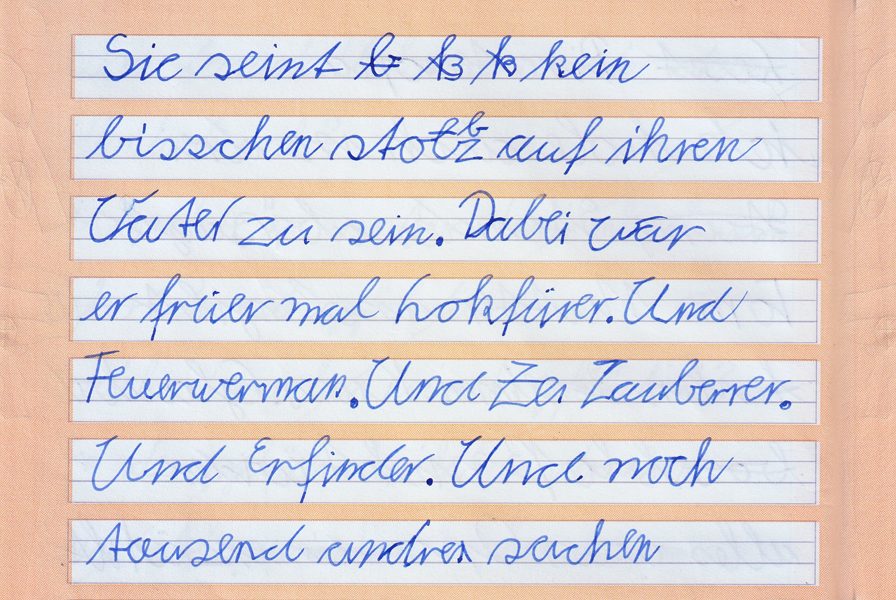 Sie seint kein
bisschen stolz auf ihren
Vater zu sein. Dabei war
er früer mal Lokfürer. Und
Feuerwerman. Und Zauberrer.
Und Erfinder. Und noch
tausend andres sachen